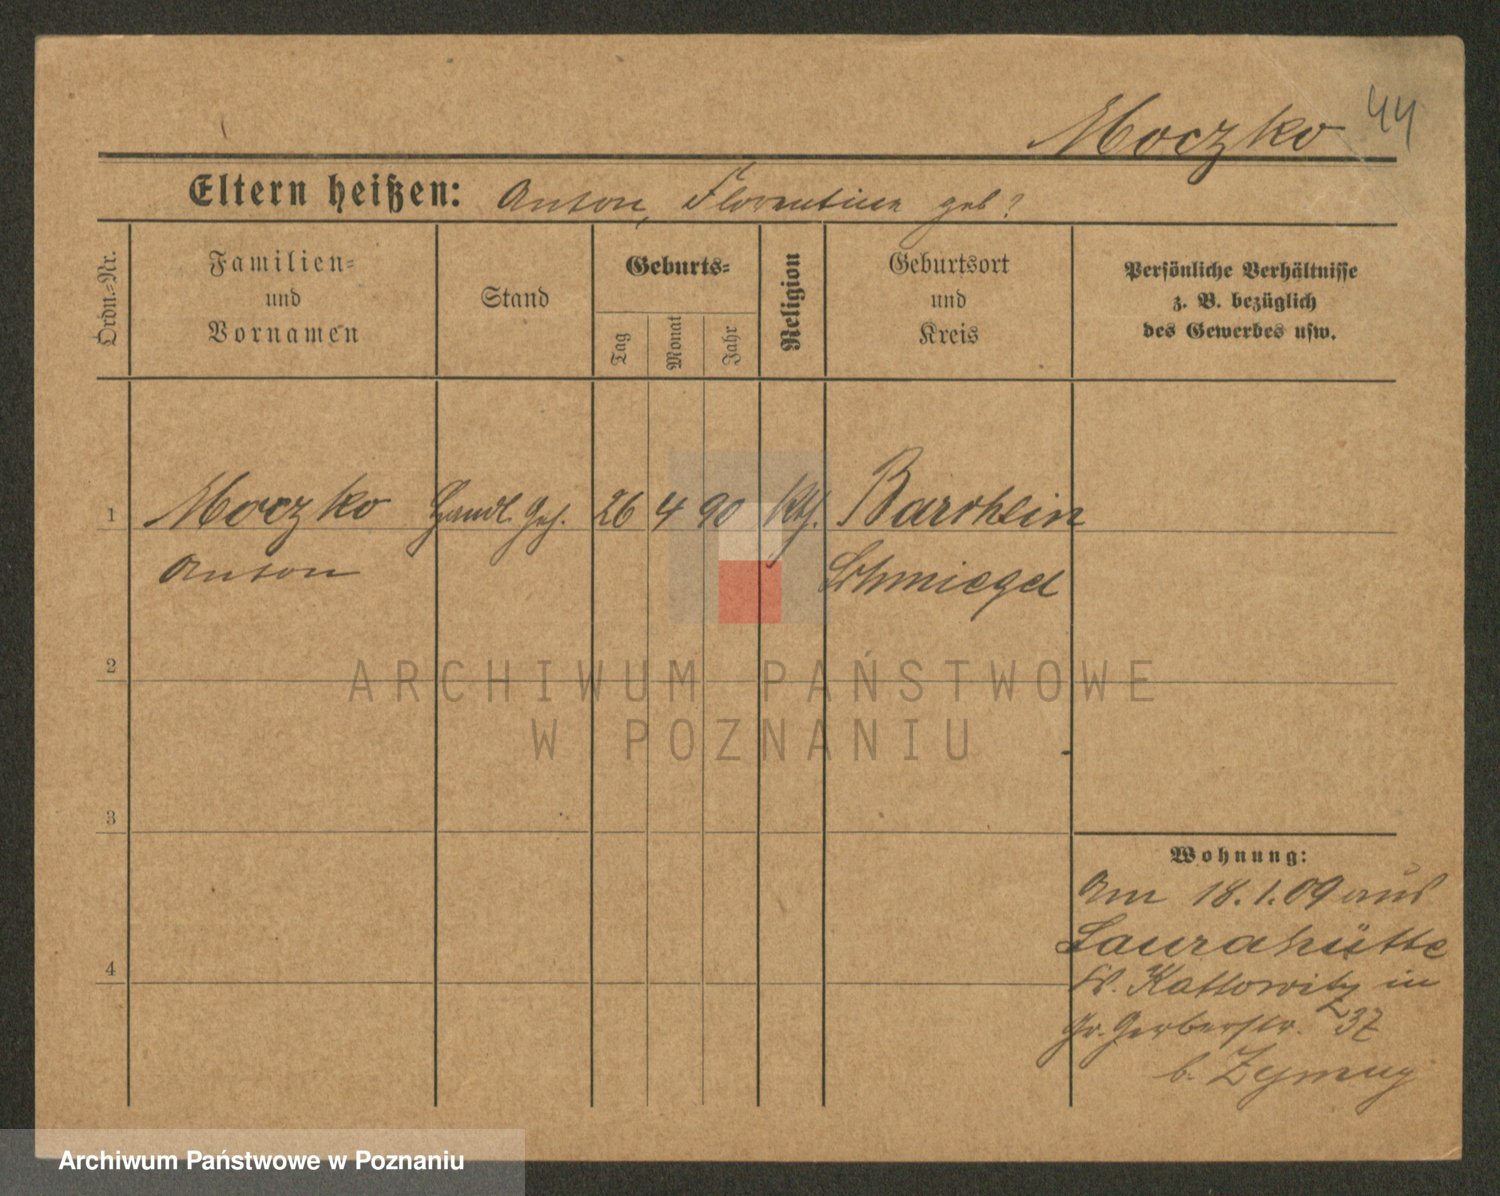 Moczko 44
Eltern heißen: Anton, Florentine geb?
Ordn.=Nr.
Familien=
und
Vornamen
Stand
Geburts=
Tag
Monat
Jahr
Religion
Geburtsort
und
Kreis
Persönliche Verhältnisse
z. B. bezüglich
des Gewerbes usw.
1 Moczko Handl. Geh. 26 4 90 Kth. Barchlin
Anton Schmiegel
2
ARCHIWUM PAŃSTWOWE
W POZNANIU
3
Wohnung:
Am 18.1.09 aus
Laurahütte
4
Kr. Kattowitz in
Gr. Gerberstr. 37
b.
Archiwum Państwowe w Poznaniu